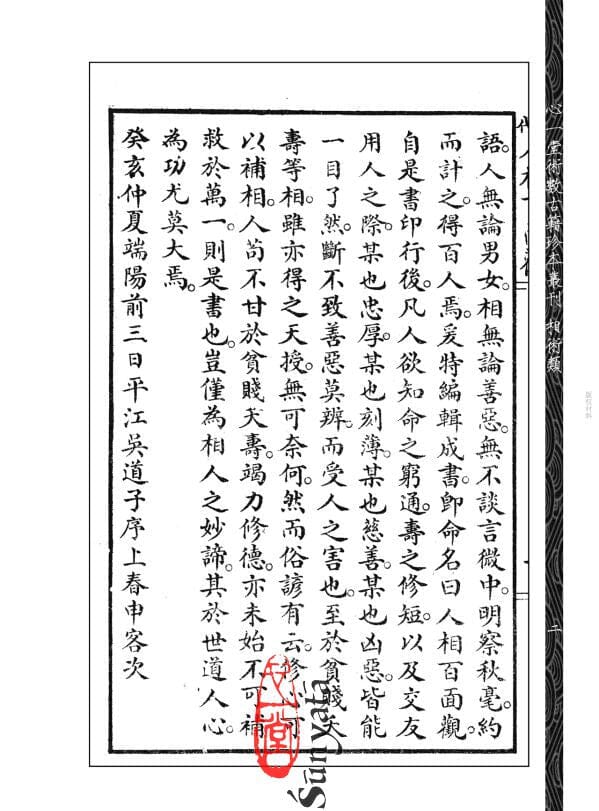 心一堂術數古籍珍本叢刊 相術類
二
版权材料
語。人無論男女。相無論善惡。無不談言微中。明察秋毫。約
而計之。得百人焉。爰特編輯成書。卽命名曰人相百面觀。
自是書印行後。凡人欲知命之窮通。壽之修短。以及交友
用人之際。某也忠厚。某也刻薄。某也慈善。某也凶惡。皆能
一目了然。斷不致善惡莫辨。而受人之害也。至於貧賤夭
壽等相。雖亦得之天授。無可奈何。然而俗諺有云。修心可
以補相。人苟不甘於貧賤夭壽。竭力修德。亦未始不可補
救於萬一。則是書也。豈僅為相人之妙諦。其於世道人心。
為功尤莫大焉。
癸亥仲夏端陽前三日平江吳道子序上春申客次
心一堂
Śūnyatā